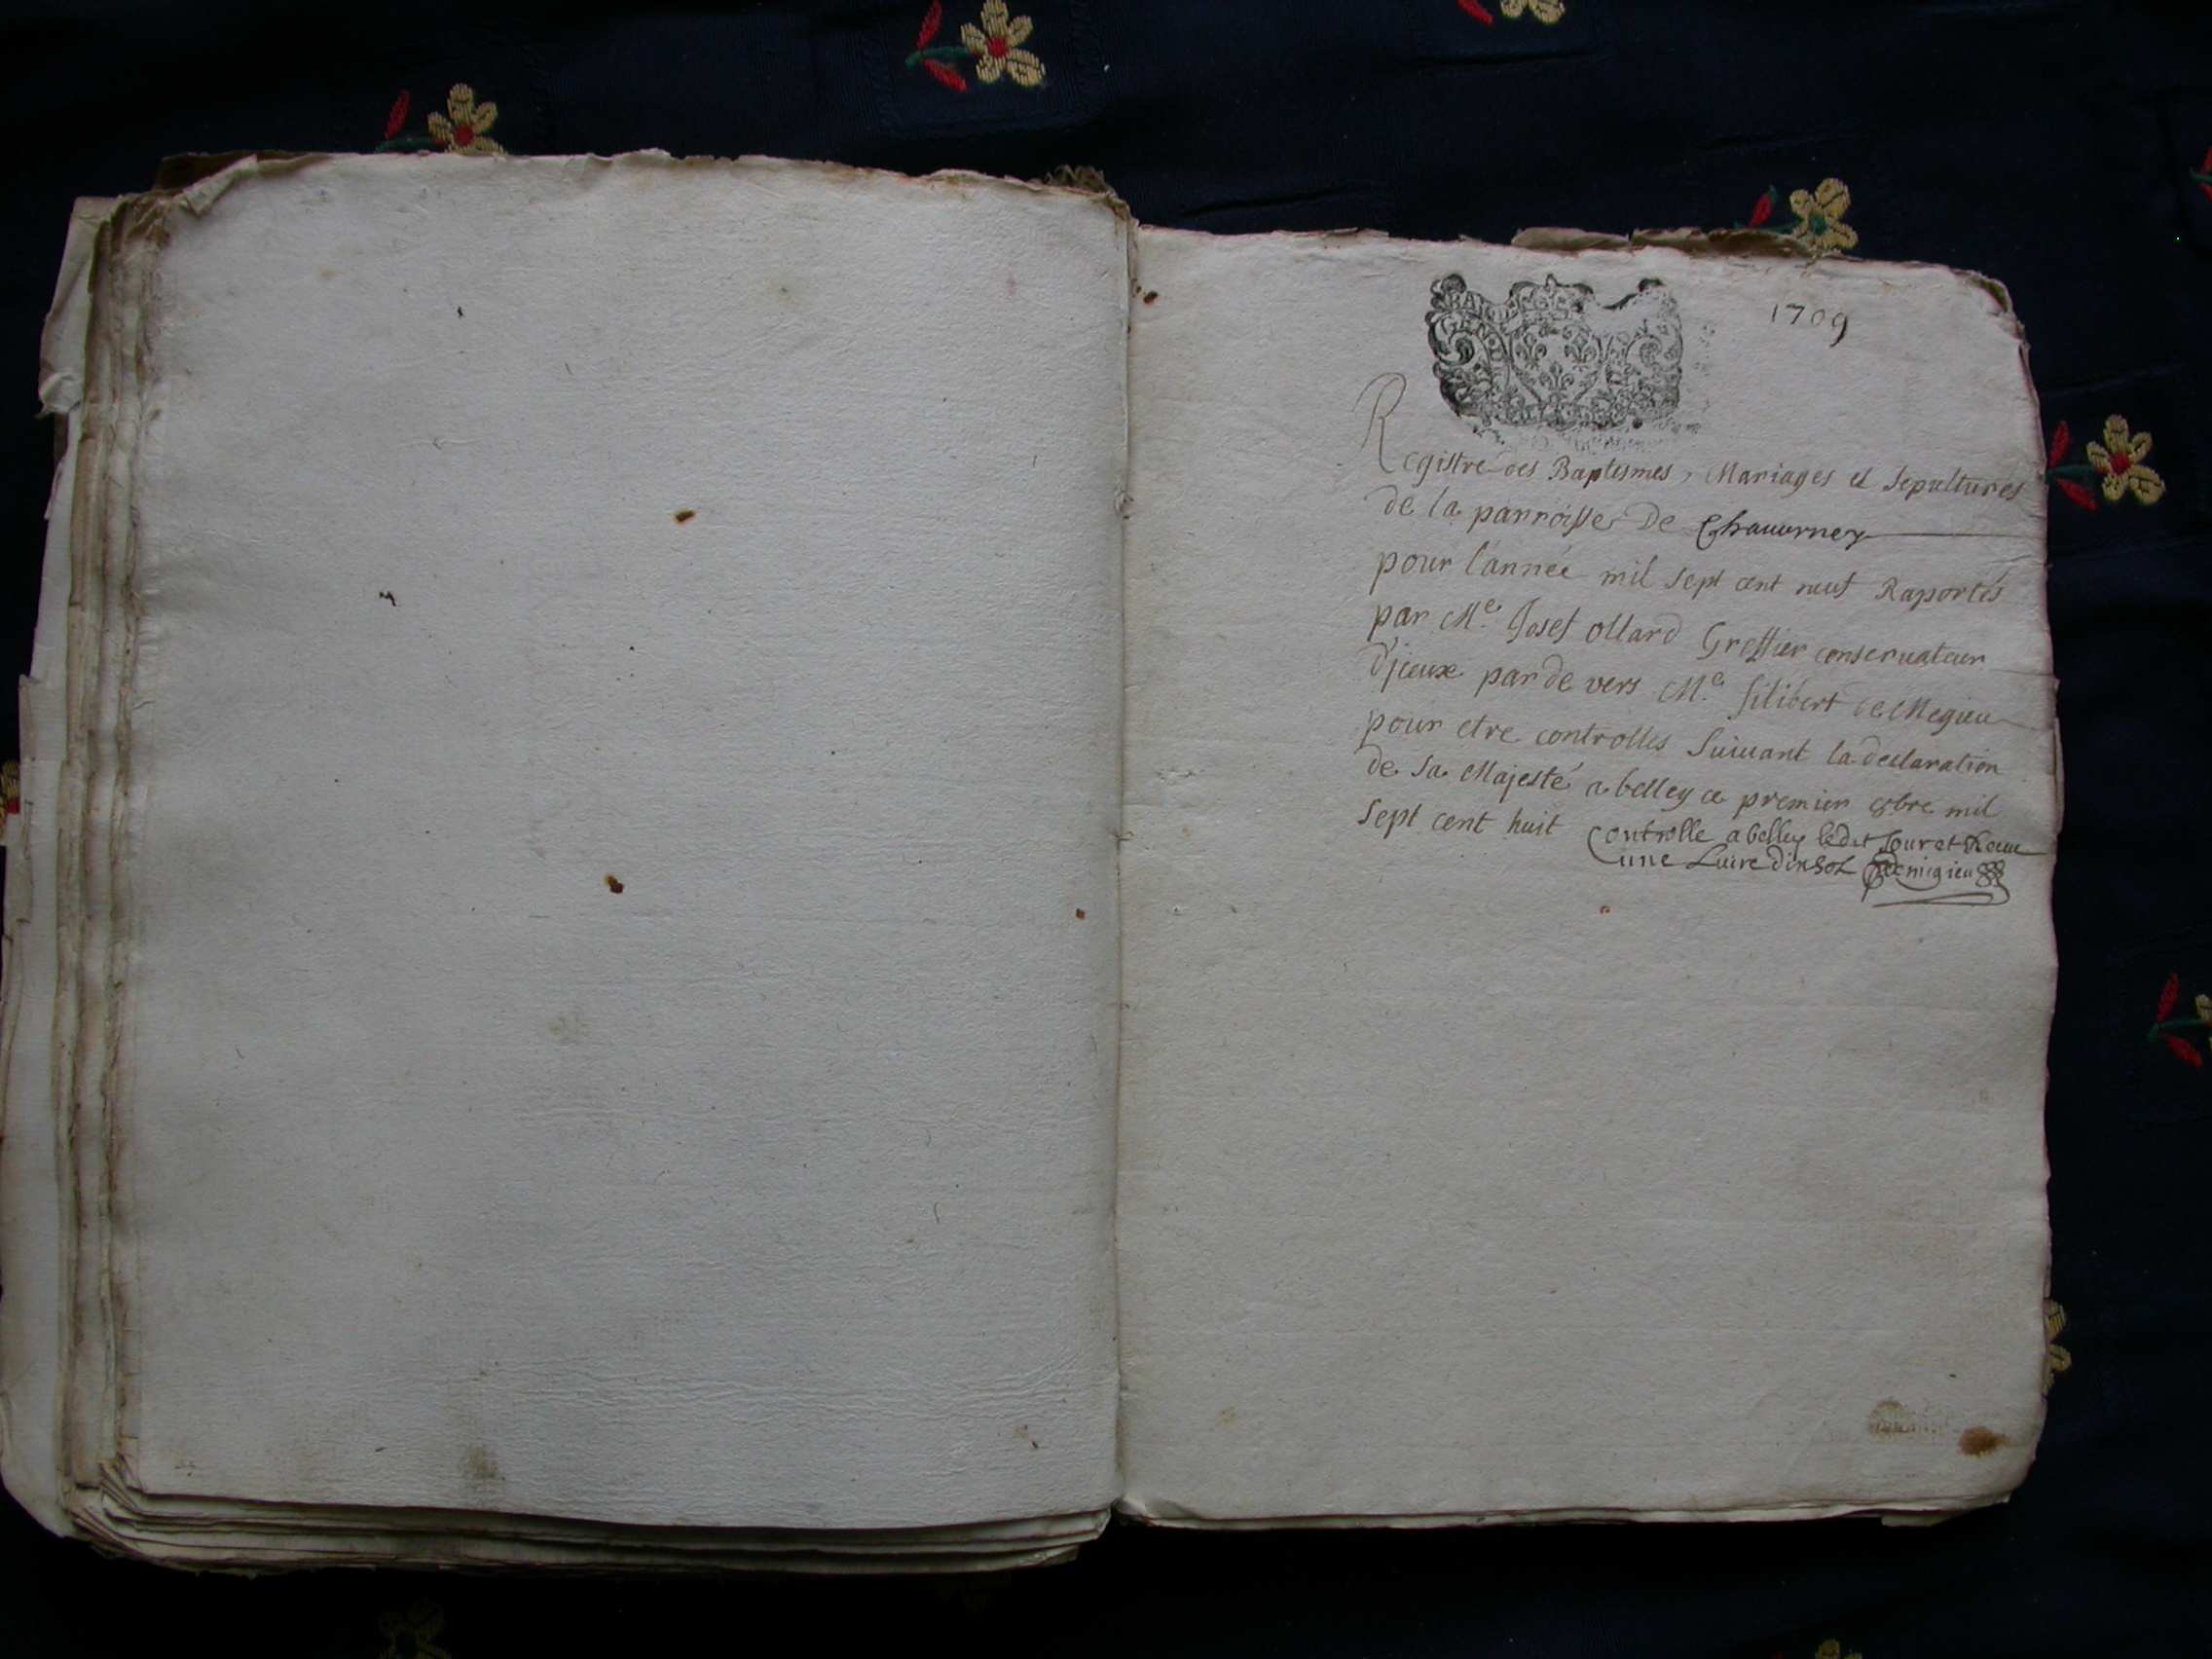 1709
Registre des Baptesmes, Mariages et Sepultures
de la parroisse de Chauurney
pour l'année mil sept cent neuf Raportés
par Me. Josef ollard Greffier conservateur
d'jceux par de vers Me. filibert de Megieu
pour etre controlles Suiuant la declaration
de Sa Majesté a belley ce premier
mil
Sept cent huit Controlle a belley ledit Jour et
une Luire dix Sol Demigieu